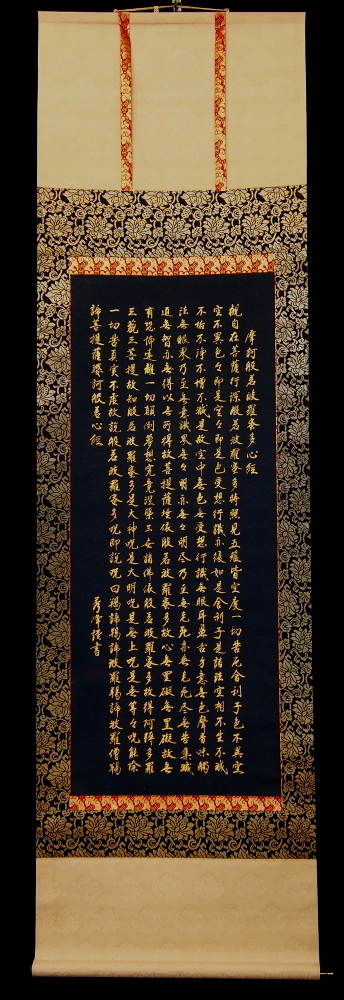 摩訶般若波羅蜜多心經
觀自在菩薩行深般若波羅蜜多時照見五蘊皆空度一切苦厄舍利子色不異空
空不異色々即是空々即是色受想行識亦復如是舍利子是諸法空相不生不滅
不垢不淨不增不減是故空中無色無受想行識無眼耳鼻舌身意無色聲香味觸
法無眼界乃至無意識界無々明亦無々明尽乃至無老死亦無老死尽無苦集滅
道無智亦無得以無所得故菩提薩埵依般若波羅蜜多故心無罣礙無罣礙故無
有恐怖遠離一切顛倒夢想究竟涅槃三世諸佛依般若波羅蜜多故得阿耨多羅
三藐三菩提故知般若波羅蜜多是大神呪是大明呪是無上呪是無等々呪能除
一切苦真實不虛故說般若波羅蜜多呪即說呪曰羯諦羯諦波羅羯諦波羅僧羯
諦菩提薩婆訶般若心經
謹書